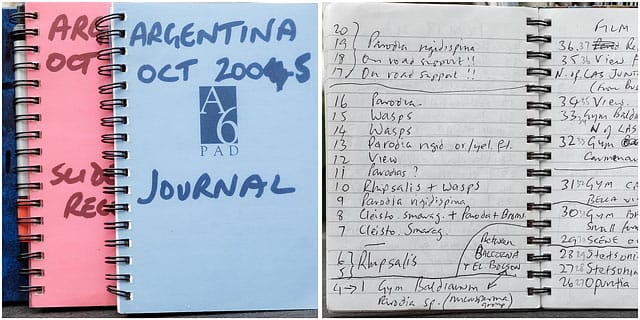 ARG
OCT
SLID
REC
ARGENTINA
OCT 2005
A6
PAD
JOURNAL
20
19 Parodia rigidispina
18 On road support!!
17 On road support!!
16 Parodia.
15 Wasps
14 Wasps
13 Parodia rigid or/yel. fl.
12 View
11 Parodias?
10 Rhipsalis + Wasps
9 Parodia rigidispina
8 Cleisto. smarag. + Parodia + Broms
7 Cleisto. Smarag.
6
5 Rhipsalis
Between
BALCOZNA
+ EL BOLSON
4 → 1 Gym Baldianum
Parodia sp. (microsperma group)
FILM
36
35 View
N. of LAS
34 View.
33 Gym Bald
N of LAS
32 Gym
31 GYM
BELLA VI
30 GYM
Small
29 SCENE
28 Stetsonia
27 Stetsonia
26 Opuntia